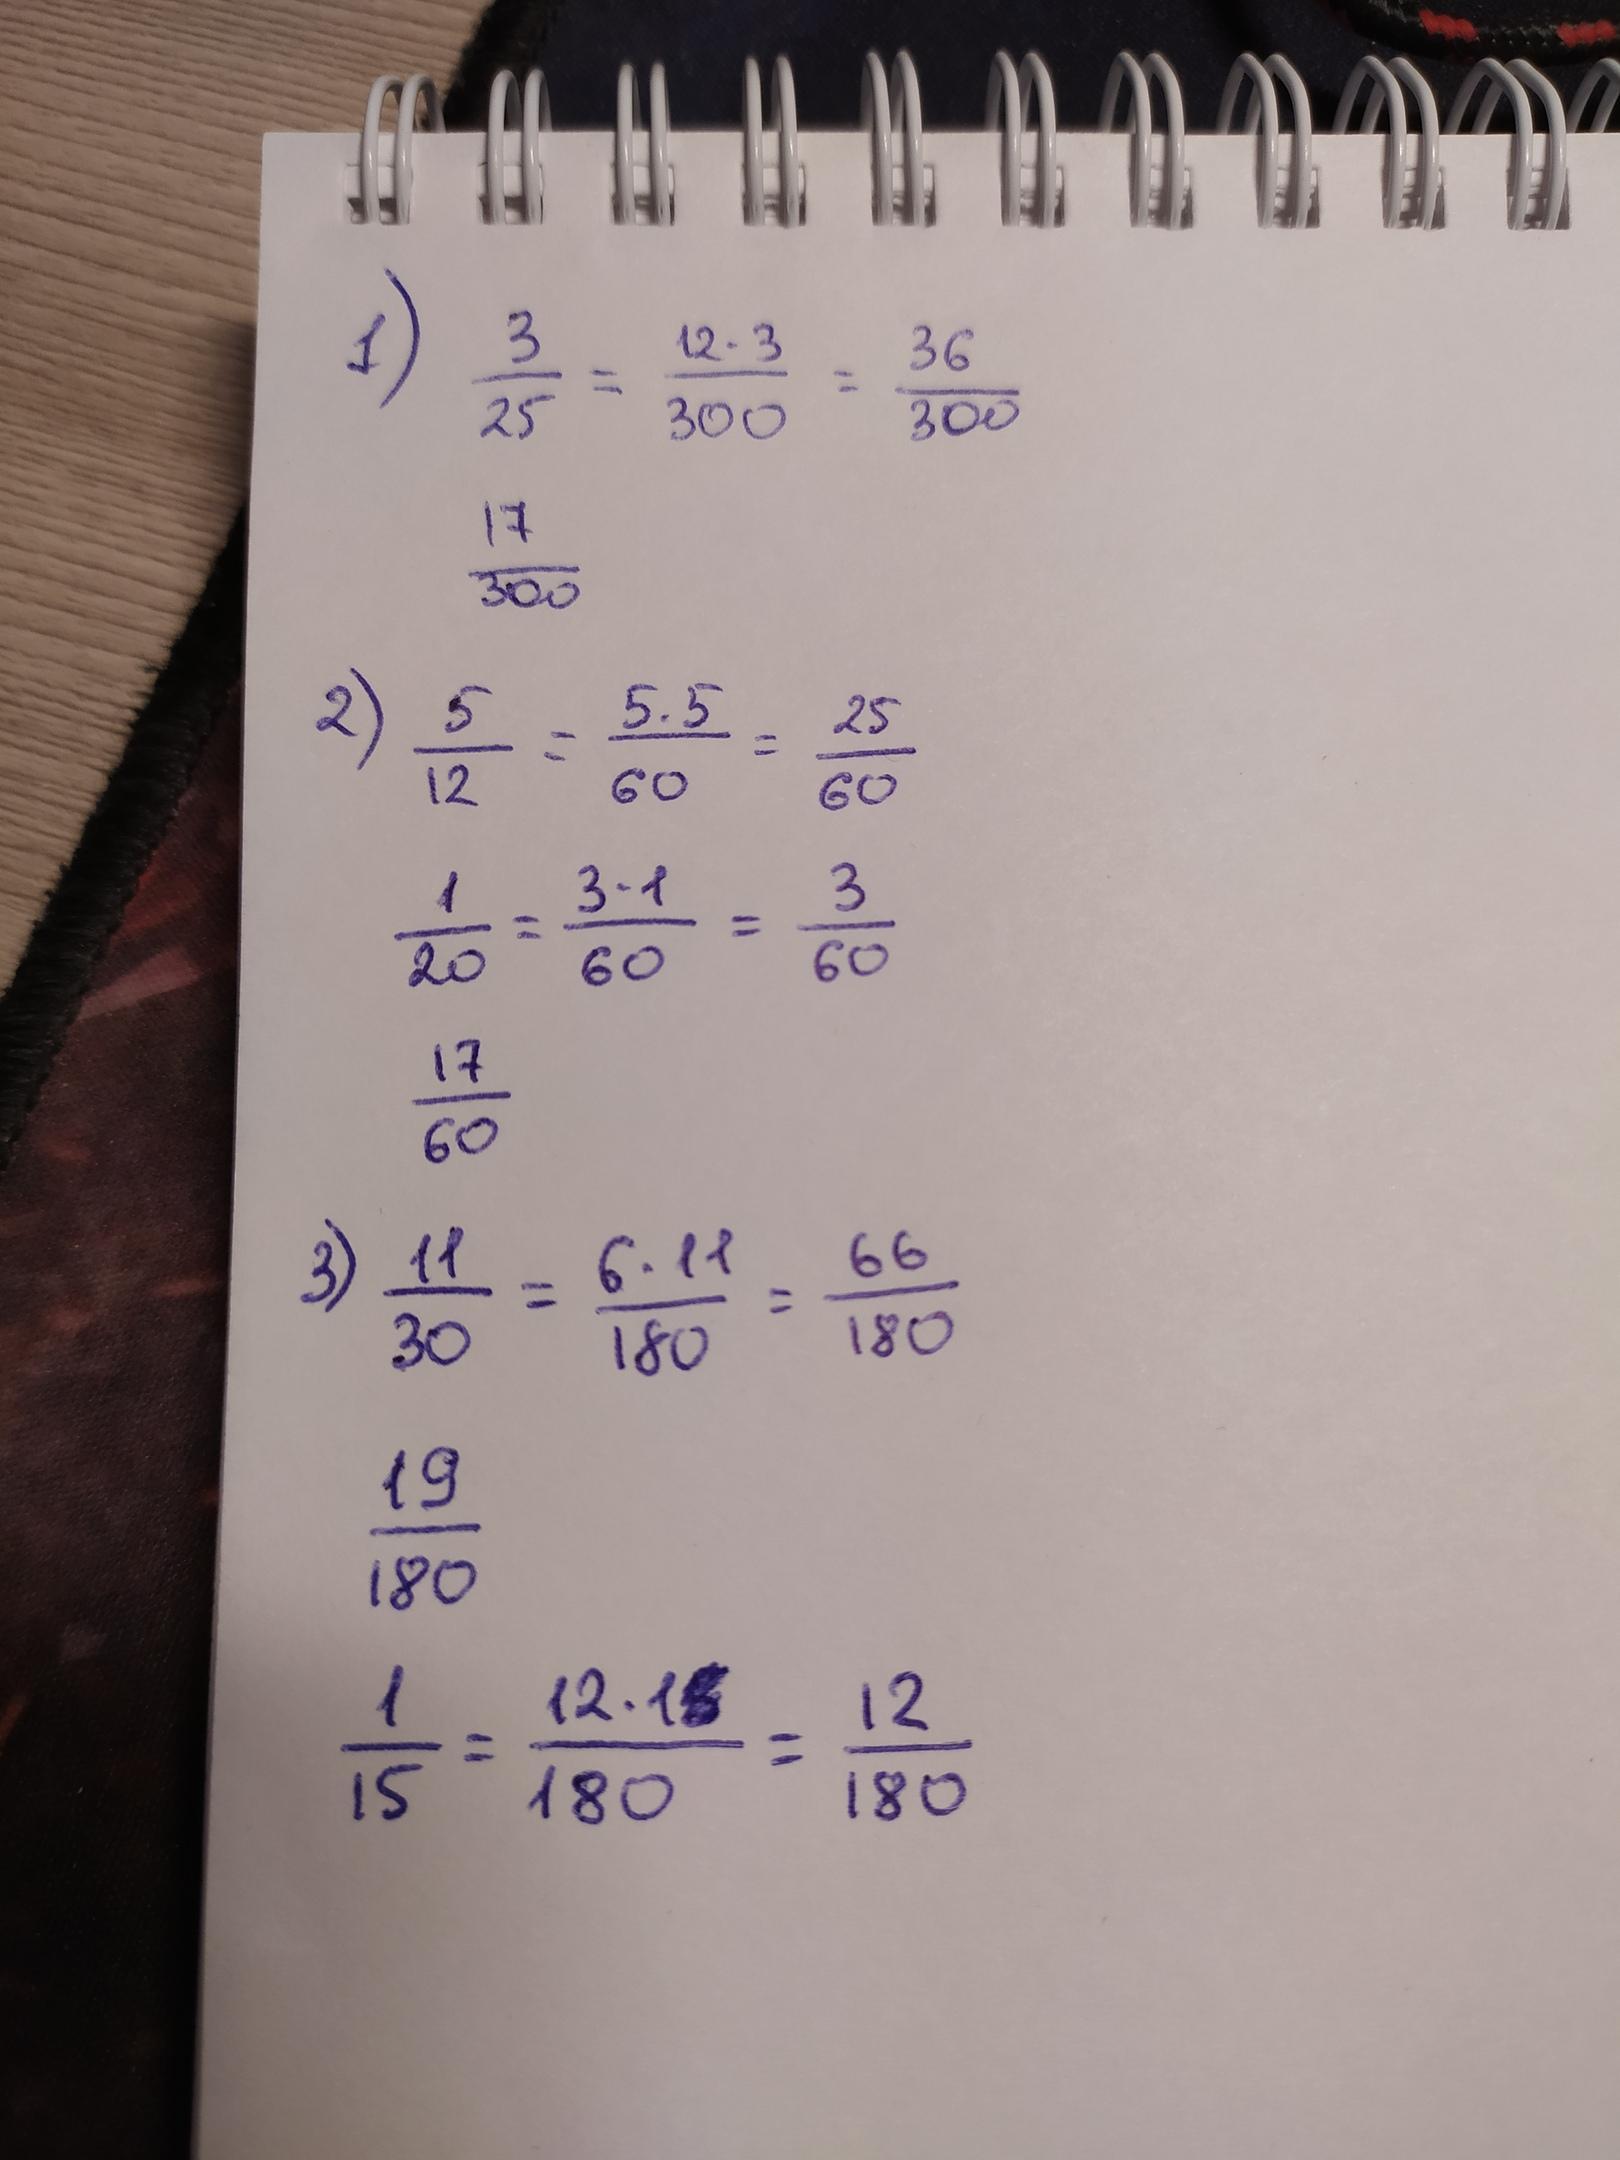 1) 3/25 = 12·3/300 = 36/300
17/300
2) 5/12 = 5.5/60 = 25/60
1/20 = 3·1/60 = 3/60
17/60
3) 11/30 = 6·11/180 = 66/180
19/180
1/15 = 12·1/180 = 12/180